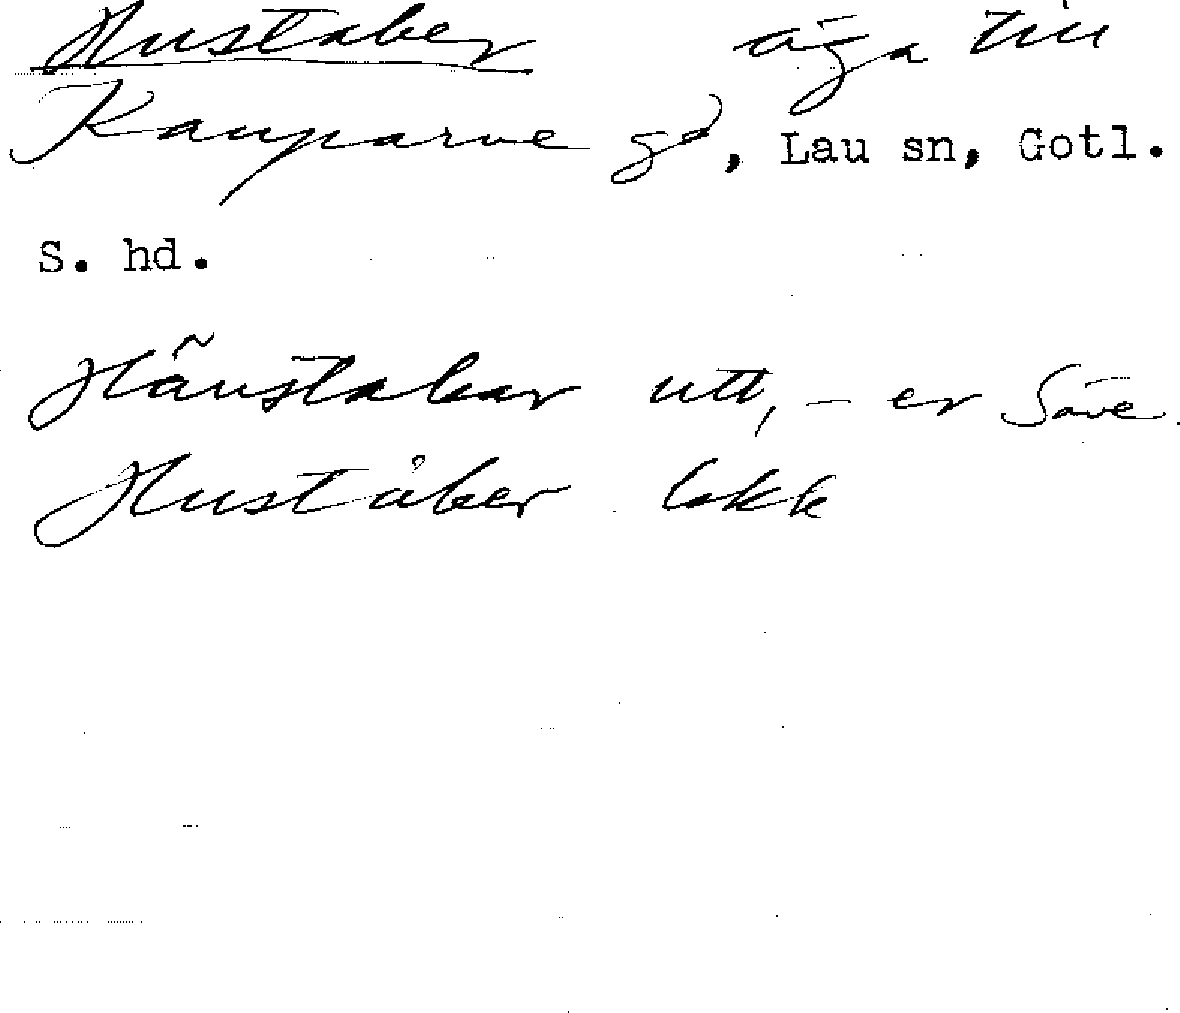 Hustaber äga till
Kauparve gd, Lau sn, Gotl.
S. hd.
Hãustabar utt, - er Säve.
Huståber lokk